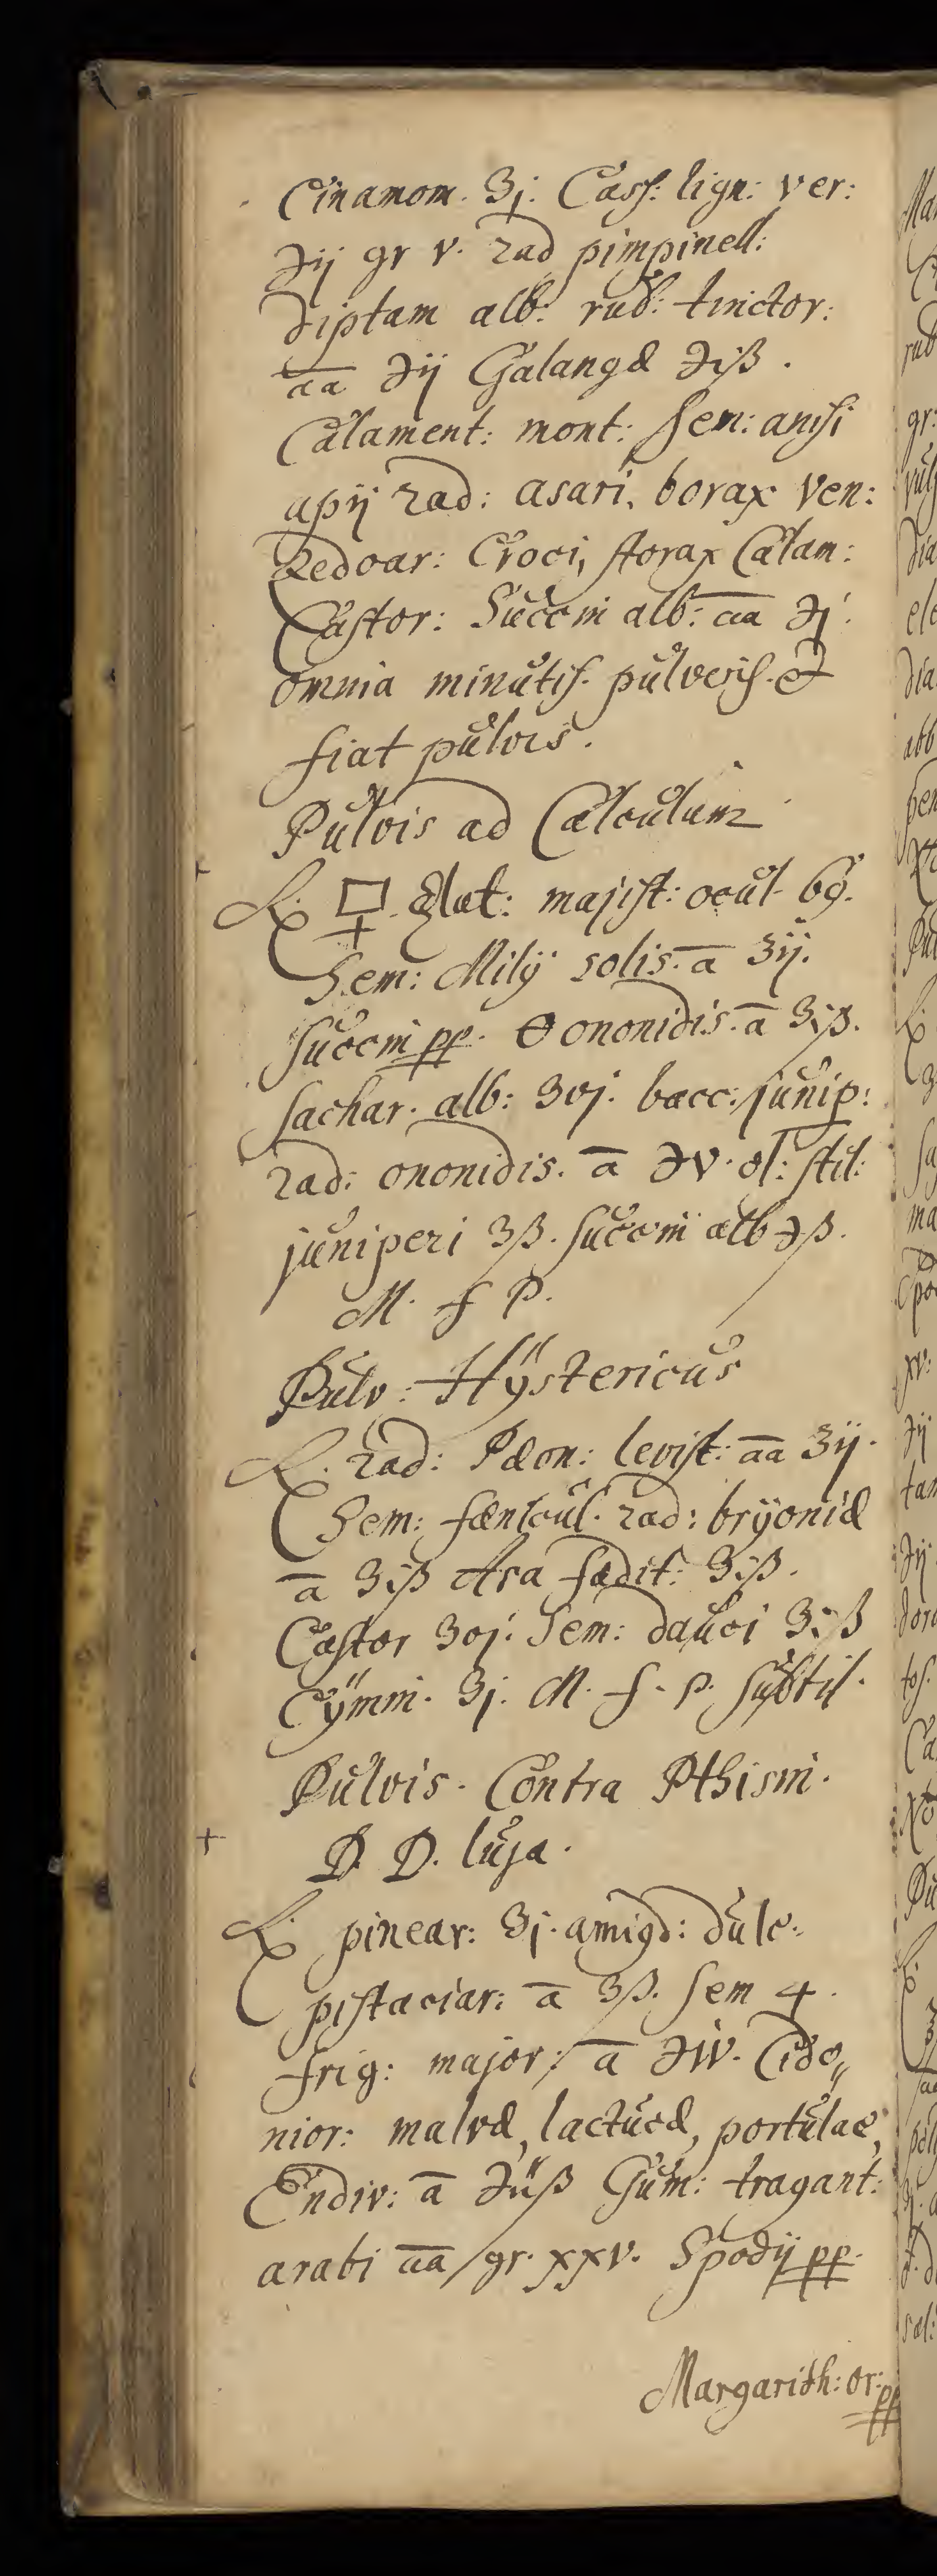 Cinamom. ʒj. Cass: lign: ver:
℈ij gr v. rad pimpinell:
diptam alb: rub: tinctor:
aa ℈ij Galangæ ℈iß.
Calament: mont: sem: anisi
apij rad: asari, borax Ven:
Zedoar: Croci, storax Calam:
Castor: Succini alb: aa ℈j.
omnia minutis. pulveris. et
fiat pulvis.
Pulvis ad Calculum
℞. majist: ocul 69.
Sem: Milij solis. a ʒij.
Succini pp. ononidis. a ʒiß.
sachar. alb: ʒvj. bacc: junip:
rad: ononidis. a ℈v. ol: stil:
juniperi ʒß. succini alb ℈ß.
M. f P.
Pulv: Hÿstericus
℞. rad: Pæon: levist: aa ʒij.
Sem: fænicul. rad: brÿoniæ
a ʒiß Asa fædit: ʒiß.
Castor ʒvj. Sem: dauci ʒiß
Cÿmini. ʒj. M. f. p. subtil.
Pulvis. Contra Pthisin.
D. D. luja.
℞ pinear: ʒj. amigd: dulc.
pistaciar: a ʒß. sem 4.
frig: major: a ℈iv. Cido„
nior: malvæ, lactucæ, portulac,
Endiv: a ℈iiß Gum: tragant:
arabi aa gr. xxv. Spodij pp.
Margarith: or: pp